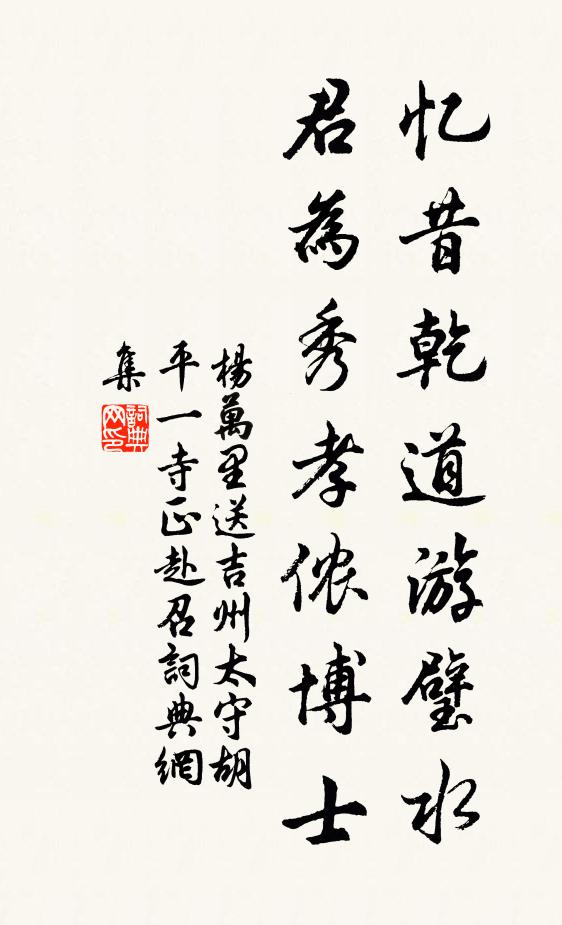 忆昔乾道游璧水
君為秀孝侬博士
楊萬里送吉州太守胡
平一寺正赴召詞典網
集
詞典
网印